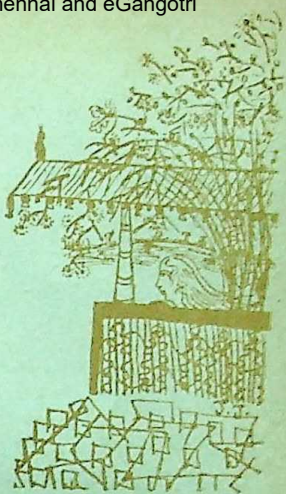 ennai and eGangotri